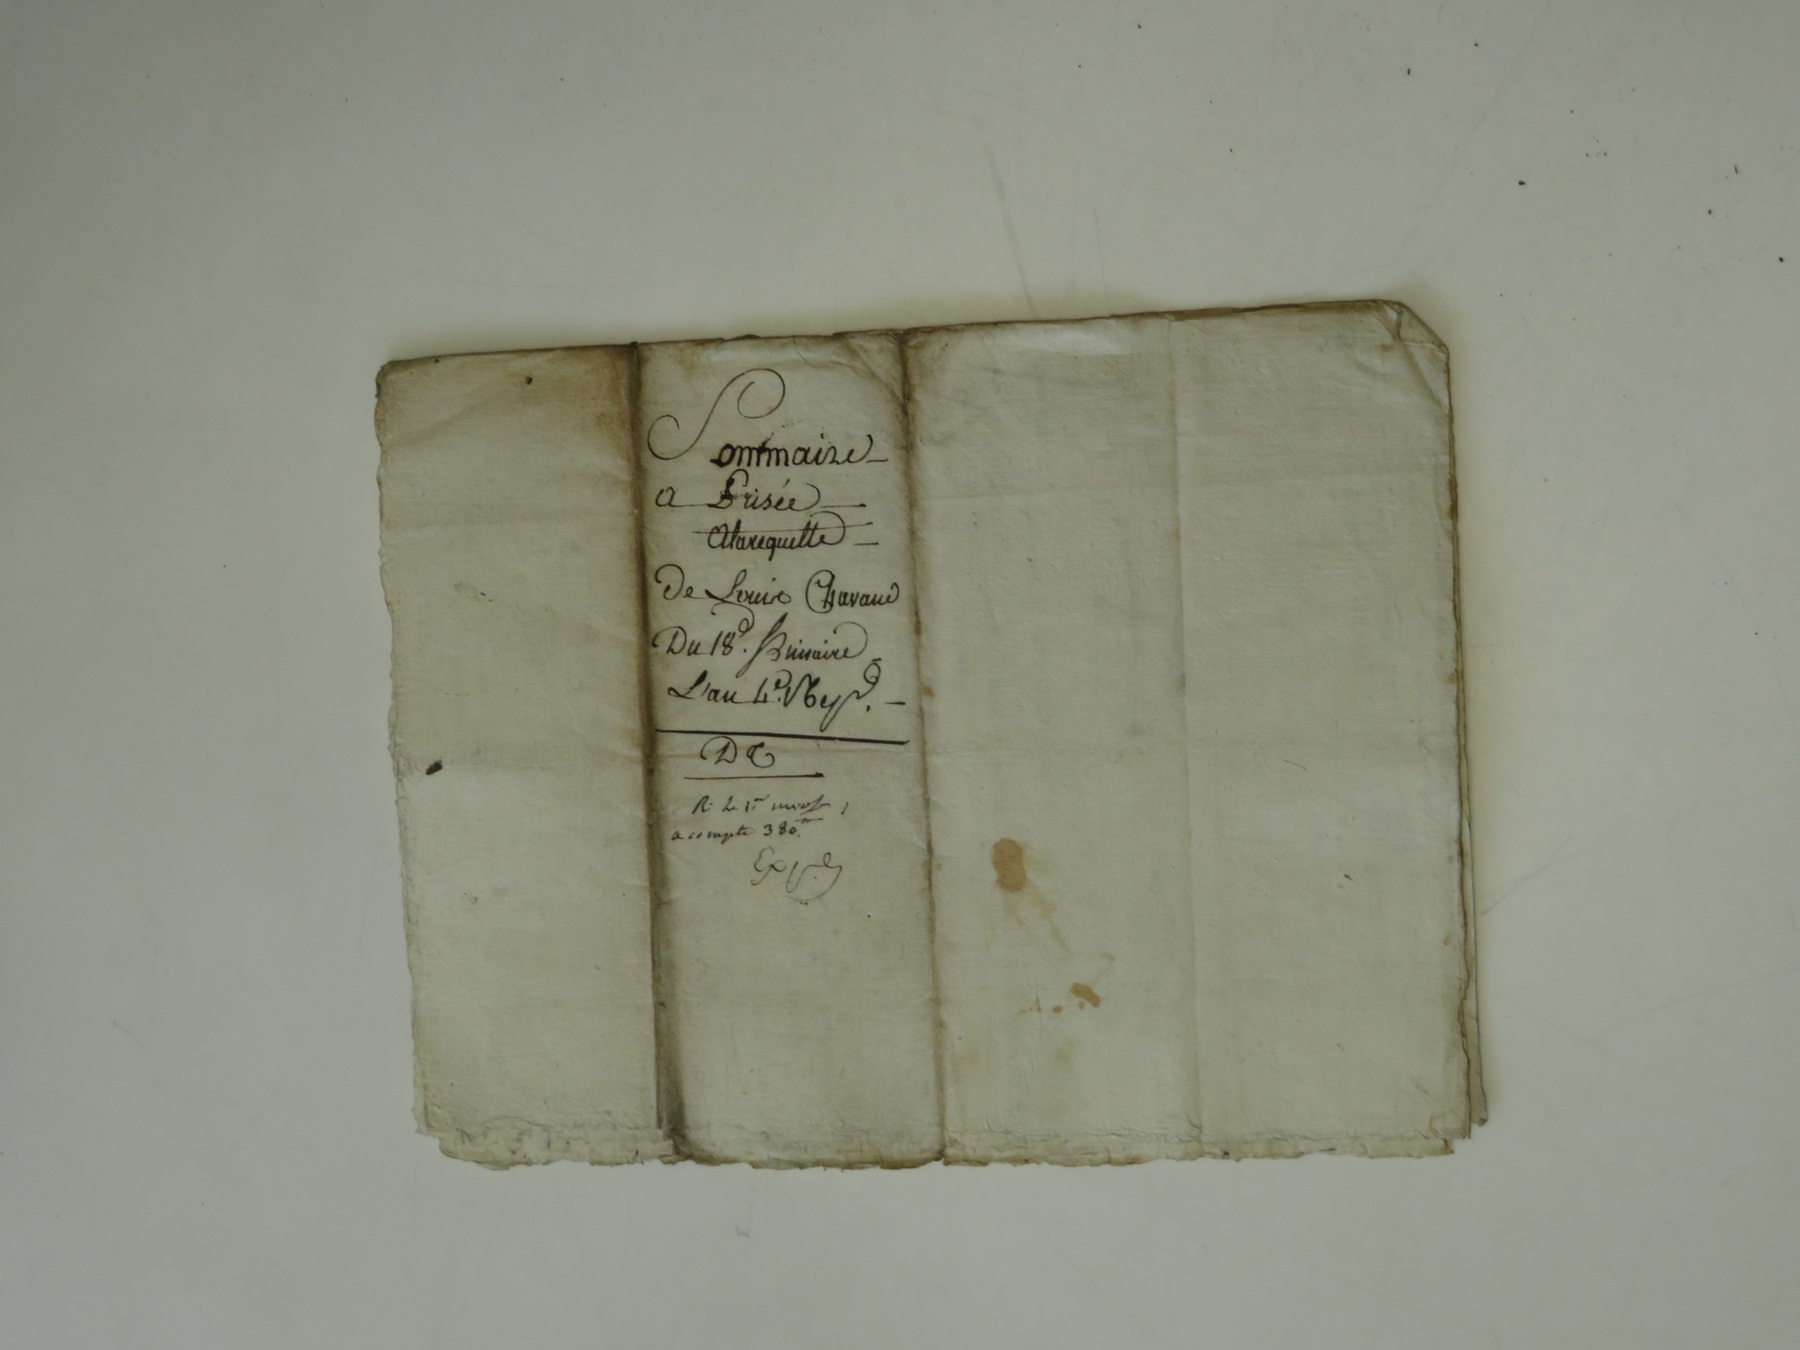 Sommaire
a Prisée
a la requette
De Louis Chavane
Du 18e. frimaire
L'an 4e. Rep
DC
R. Le 1er nivose
a compte 380
Exp.